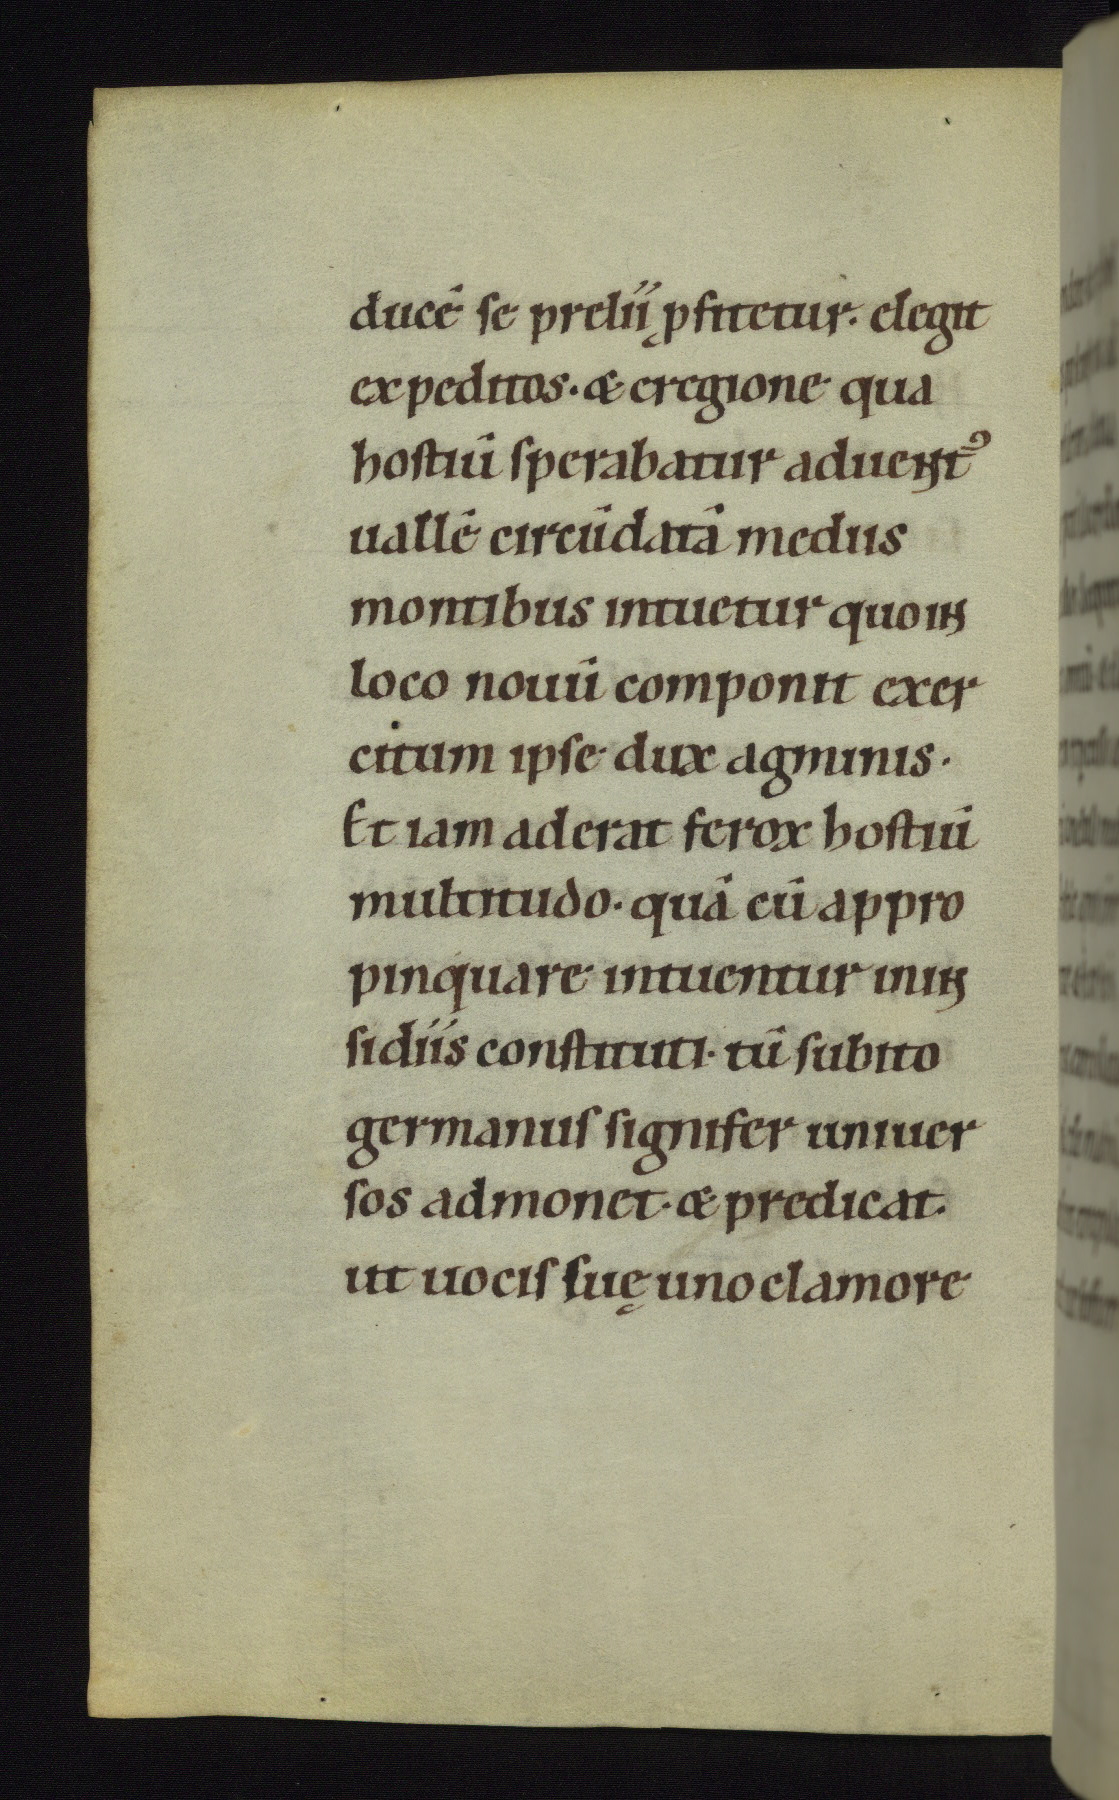 ducē se prelii ꝓfitetur. elegit
expeditos. & eregione qua
hostiū sperabatur aduentꝰ
uallē circūdatā mediis
montibus intuetur quo in
loco nouū componit exer
citum ipse dux agminis.
Et iam aderat ferox hostiū
multitudo. quā cū appro
pinquare intuentur in in
sidiis constituti. tū subito
germanus signifer uniuer
sos admonet. & predicat.
ut uocis suę uno clamore